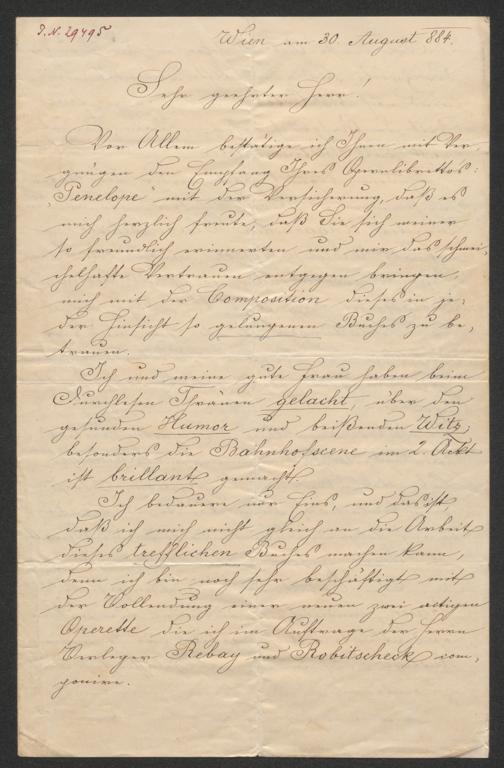 I. N. 29495
Wien am 30. August 884.
Sehr geehrter Herr!
Vor Allem bestätige ich Ihnen mit Ver-
gnügen den Empfang Ihres Opernlibrettos:
"Penelope" mit der Versicherung, daß es
mich herzlich freute, daß Sie sich meiner
so freundlich erinnerten und mir das schmei-
chelhafte Vertrauen entgegen bringen,
mich mit der Composition dieses in je-
der Hinsicht so gelungenen Buches zu be-
trauen.
Ich und meine gute Frau haben beim
Durchlesen Thränen gelacht, über den
gesunden Humor und beißenden Witz,
besonders die Bahnhofscene im 2. Ackt
ist brillant gemacht.
Ich bedauere nur Eins, und das ist,
daß ich mich nicht gleich an die Arbeit
dieses trefflichen Buches machen kann,
denn ich bin noch sehr beschäftigt mit
der Vollendung einer neuen zwei actigen
Operette die ich im Auftrage der Herrn
Verleger Rebay und Robitscheck com-
ponire.